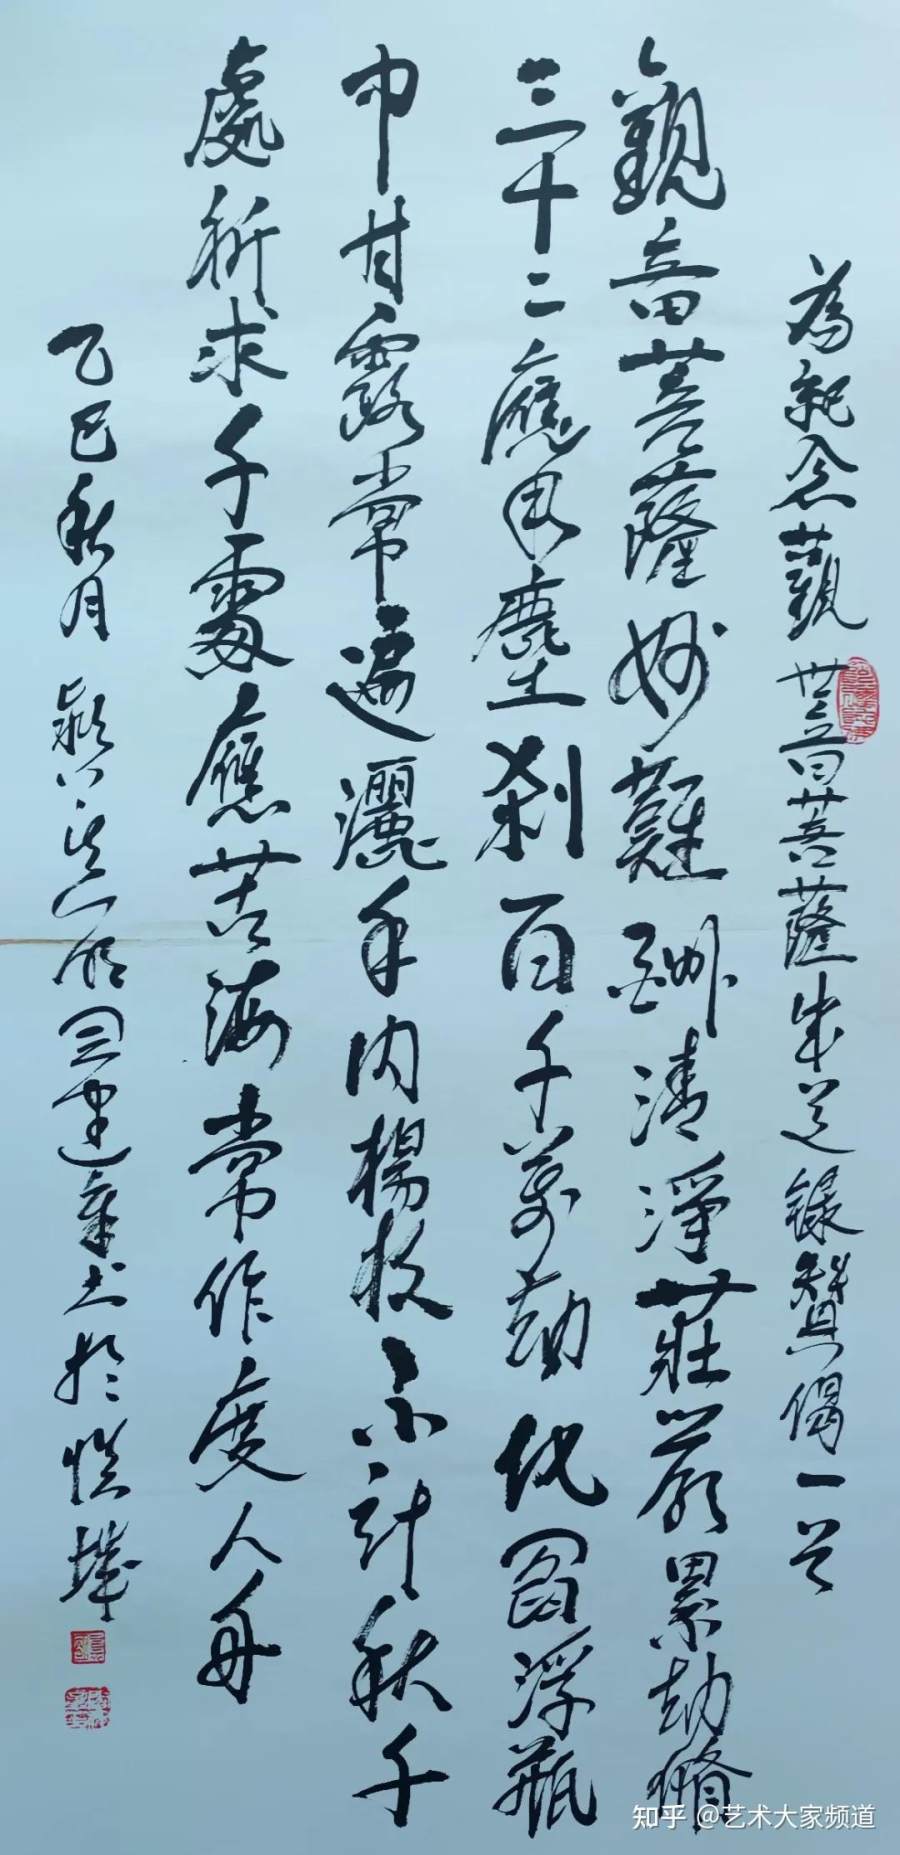 為紀念觀世音菩薩成道録贊偈一首
觀音菩薩妙難酬清淨莊嚴累劫脩
三十二應周塵刹百千萬劫化閻浮瓶
中甘露常遍灑手内楊枝不計秋千
處祈求千處應苦海常作度人舟
乙巳秋月 建章书於慎城
知乎 @艺术大家频道